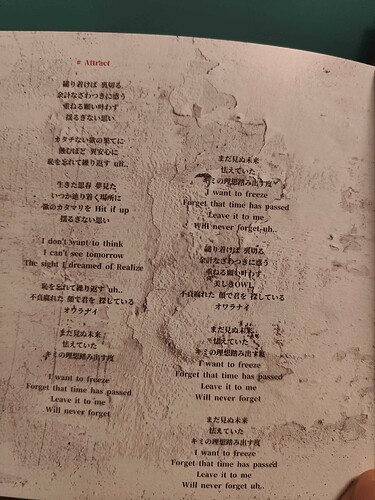 # Attract
縋り着けば 裏切る
余計なざわつきに惑う
重ねる願い叶わず
揺るぎない思い
カタチない欲の果てに
恥を忘れて繰り返す uh..
生きた思春 夢見た
いつか辿り着く場所に
欲のカタマリを Hit if up
揺るぎない思い
I don't want to think
I can't see tomorrow
The sight I dreamed of Realize
恥を忘れて繰り返す uh..
不貞腐れた 顔で君を 探している
オワラナイ
まだ見ぬ未来
怯えていた
キミの理想踏み出す度
I want to freeze
Forget that time has passed
Leave it to me
Will never forget
まだ見ぬ未来
怯えていた
キミの理想踏み出す度
I want to freeze
Forget that time has passed
Leave it to me
Will never forget uh..
縋り着けば 裏切る
余計なざわつきに惑う
重ねる願い叶わず
美しきOWL
不貞腐れた 顔で君を 探している
オワラナイ
まだ見ぬ未来
怯えていた
キミの理想踏み出す度
I want to freeze
Forget that time has passed
Leave it to me
Will never forget
まだ見ぬ未来
怯えていた
キミの理想踏み出す度
I want to freeze
Forget that time has passed
Leave it to me
Will never forget uh..